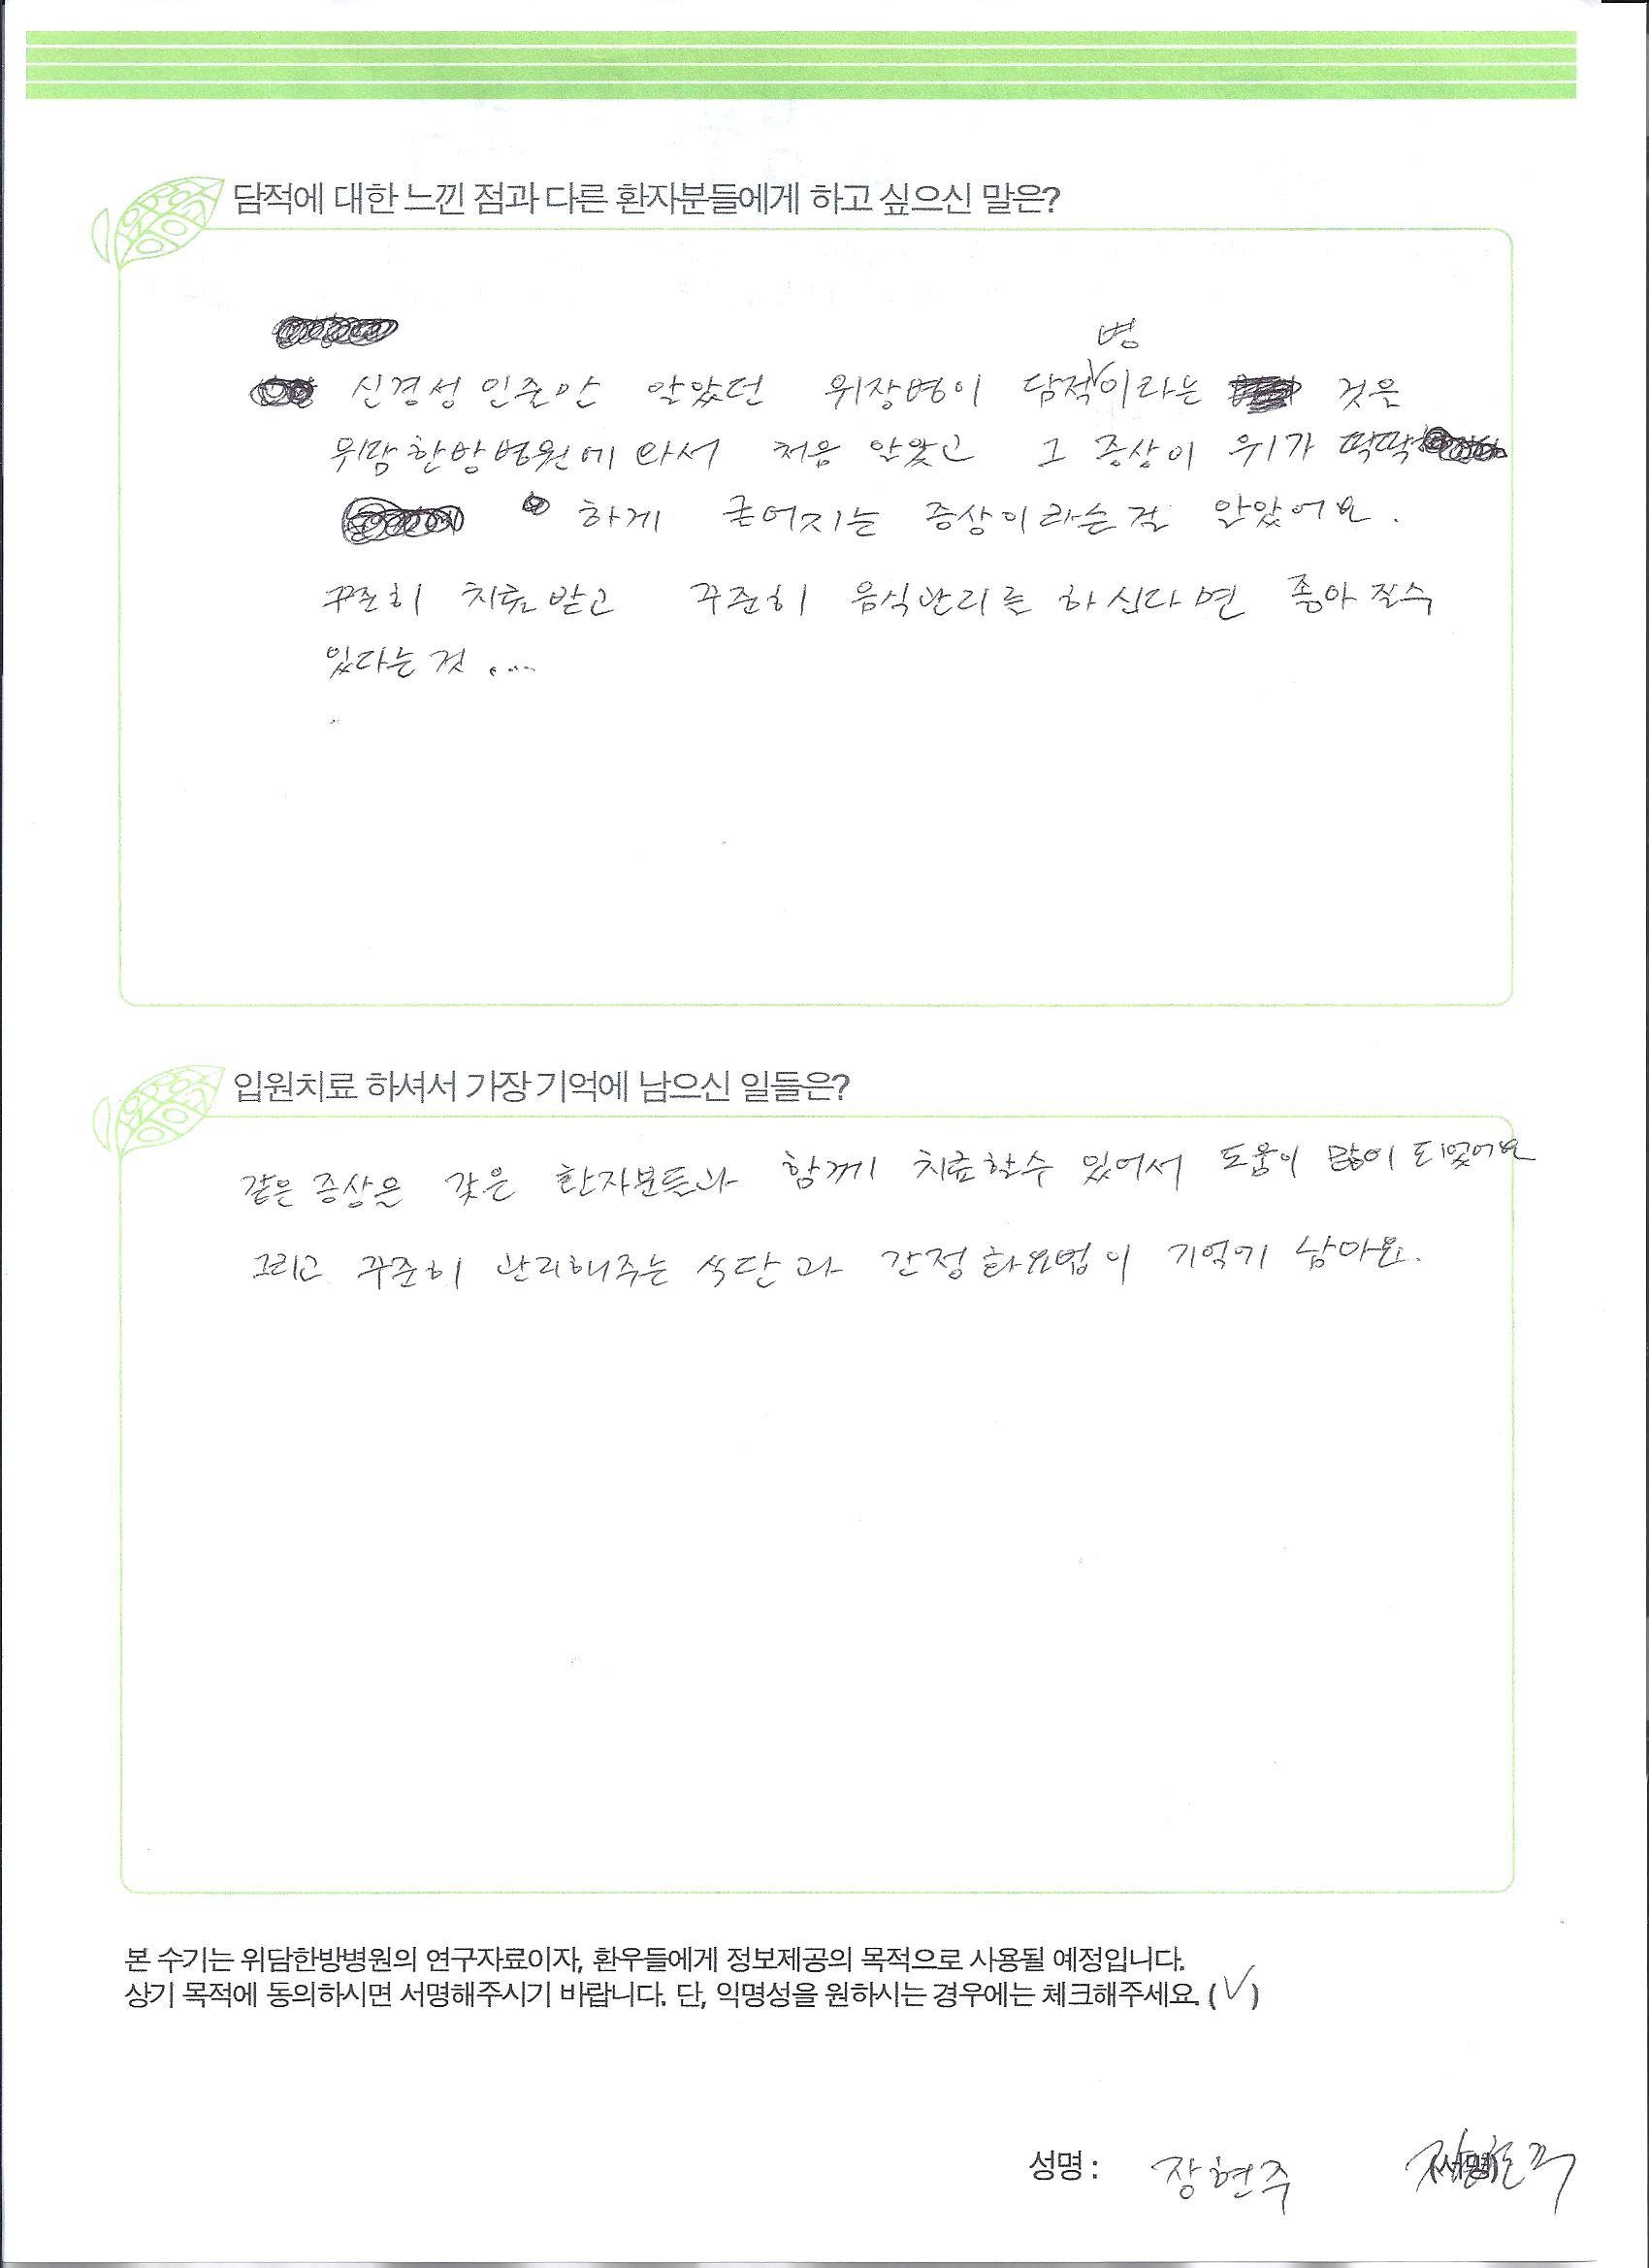 담적에 대한 느낀 점과 다른 환자분들에게 하고 싶으신 말은?
병
신경성 인줄만 알았던 위장병이 담적이라는 것은
위담한방병원에 와서 처음 알았고 그 증상이 위가 딱딱
하게 굳어지는 증상이라는걸 알았어요.
꾸준히 치료받고 꾸준히 음식관리를 하신다면 좋아질수
있다는것 ....
입원치료 하셔서 가장 기억에 남으신 일들은?
같은 증상을 갖은 환자분들과 함께 치료할수 있어서 도움이 많이 되었어요
그리고 꾸준히 관리해주는 식단과 간정화요법이 기억에 남아요.
본 수기는 위담한방병원의 연구자료이자, 환우들에게 정보제공의 목적으로 사용될 예정입니다.
상기 목적에 동의하시면 서명해주시기 바랍니다. 단, 익명성을 원하시는 경우에는 체크해주세요. (√)
성명 : 장현주 (서명)